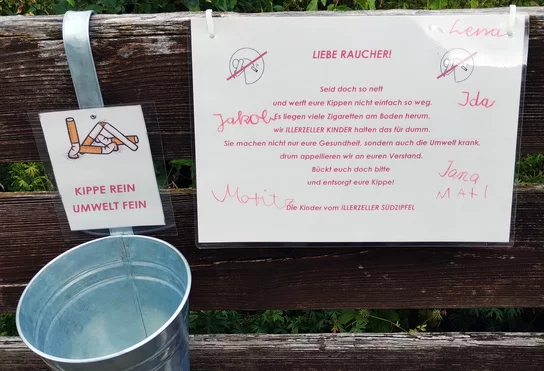 KIPPE REIN
UMWELT FEIN
LIEBE RAUCHER!
Seid doch so nett
und werft eure Kippen nicht einfach so weg.
Es liegen viele Zigaretten am Boden herum,
wir ILLERZELLER KINDER halten das für dumm.
Sie machen nicht nur eure Gesundheit, sondern auch die Umwelt krank,
drum appellieren wir an euren Verstand.
Bückt euch doch bitte
und entsorgt eure Kippe!
Die Kinder vom ILLERZELLER SÜDZIPFEL
Lena
Ida
Jakob
Jana
Moritz